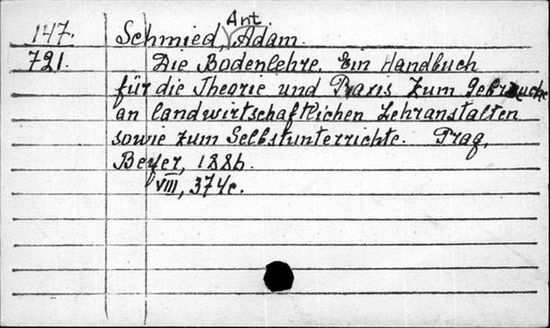 147. Schmied, Ant. Adam.
721. Die Bodenlehre. Ein Handbuch
für die Theorie und Praxis zum Gebrauche
an landwirtschaftlichen Lehranstalten
sowie zum Selbstunterrichte. Prag,
Beyer, 1886.
VIII, 374c.